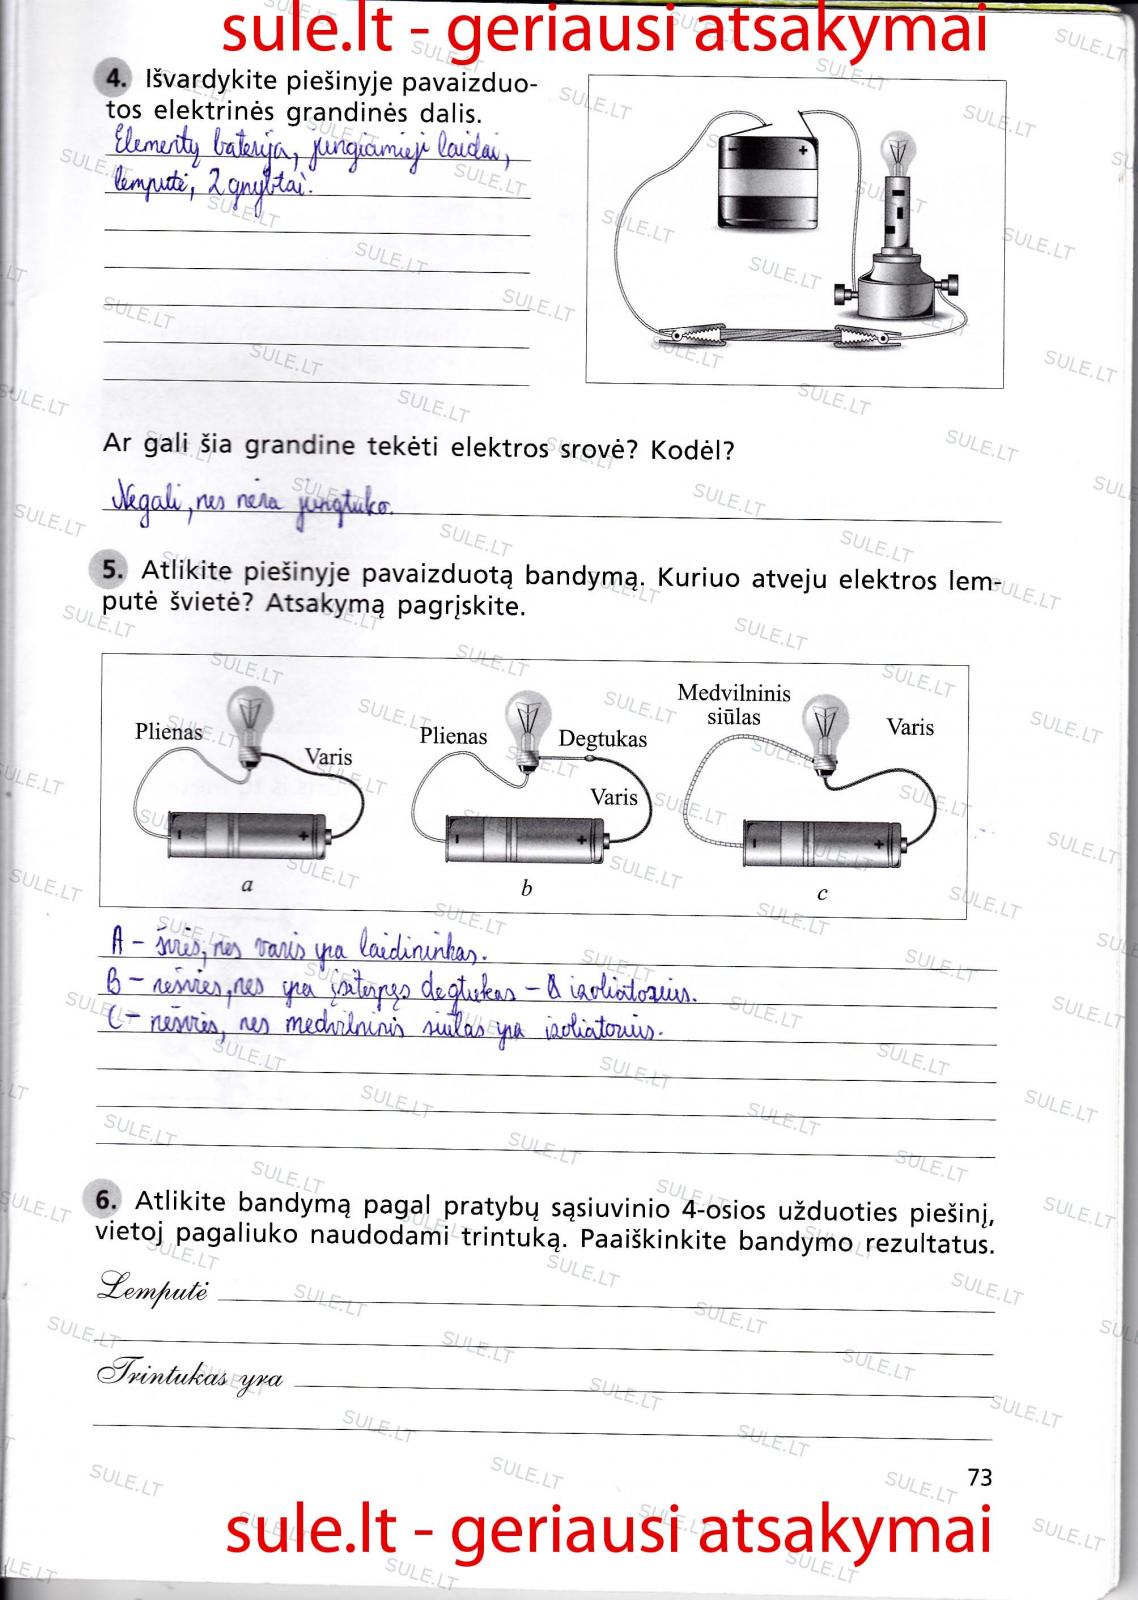 sule.lt - geriausi atsakymai
4. Išvardykite piešinyje pavaizduo-
tos elektrinės grandinės dalis.
Elementų baterija, jungiamieji laidai,
lemputė, 2 gnybtai.
- +
Ar gali šia grandine tekėti elektros srovė? Kodėl?
Negali, nes nėra jungtuko.
5. Atlikite piešinyje pavaizduotą bandymą. Kuriuo atveju elektros lem-
putė švietė? Atsakymą pagrįskite.
Plienas
Varis
- +
a
Plienas
Degtukas
Varis
- +
b
Medvilninis
siūlas
Varis
- +
c
A - švies, nes varis yra laidininkas.
B - nešvies, nes yra įsiterpęs degtukas - izoliatorius.
C - nešvies, nes medvilninis siulas yra izoliatorius.
6. Atlikite bandymą pagal pratybų sąsiuvinio 4-osios užduoties piešinį,
vietoj pagaliuko naudodami trintuką. Paaiškinkite bandymo rezultatus.
Lemputė
Trintukas yra
73
sule.lt - geriausi atsakymai
SULE.LT